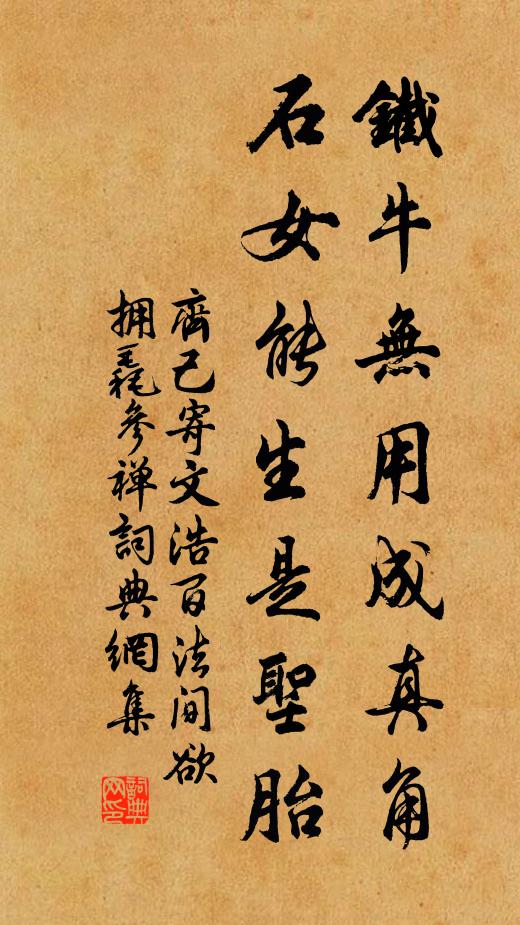 鐵牛無用成真角
石女能生是聖胎
齊己寄文浩百法間欲
拥毳參禪詞典網集
詞典网印